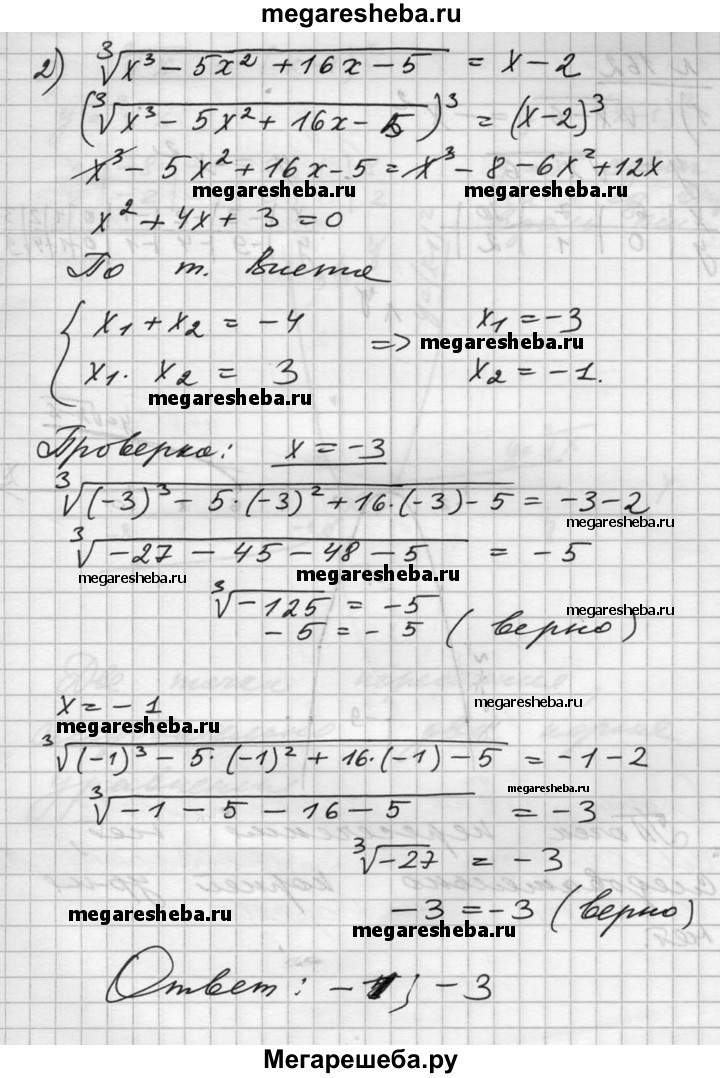 megaresheba.ru
2) ∛(x³ − 5x² + 16x − 5) = x − 2
(∛(x³ − 5x² + 16x − 5))³ = (x−2)³
x³ − 5x² + 16x − 5 = x³ − 8 − 6x² + 12x
megaresheba.ru megaresheba.ru
x² + 4x + 3 = 0
По т. Виета
{ x₁ + x₂ = −4 x₁ = −3
=> megaresheba.ru
x₁ · x₂ = 3 x₂ = −1.
megaresheba.ru
Проверка: x = −3
∛((−3)³ − 5·(−3)² + 16·(−3) − 5) = −3−2
megaresheba.ru
∛(−27 − 45 − 48 − 5) = −5
megaresheba.ru megaresheba.ru
∛−125 = −5
megaresheba.ru
−5 = −5 (верно)
x = −1
megaresheba.ru
megaresheba.ru
∛((−1)³ − 5·(−1)² + 16·(−1) − 5) = −1−2
megaresheba.ru
∛(−1 − 5 − 16 − 5) = −3
∛−27 = −3
megaresheba.ru
−3 = −3 (верно)
megaresheba.ru
Ответ: −1; −3
Мегарешеба.ру